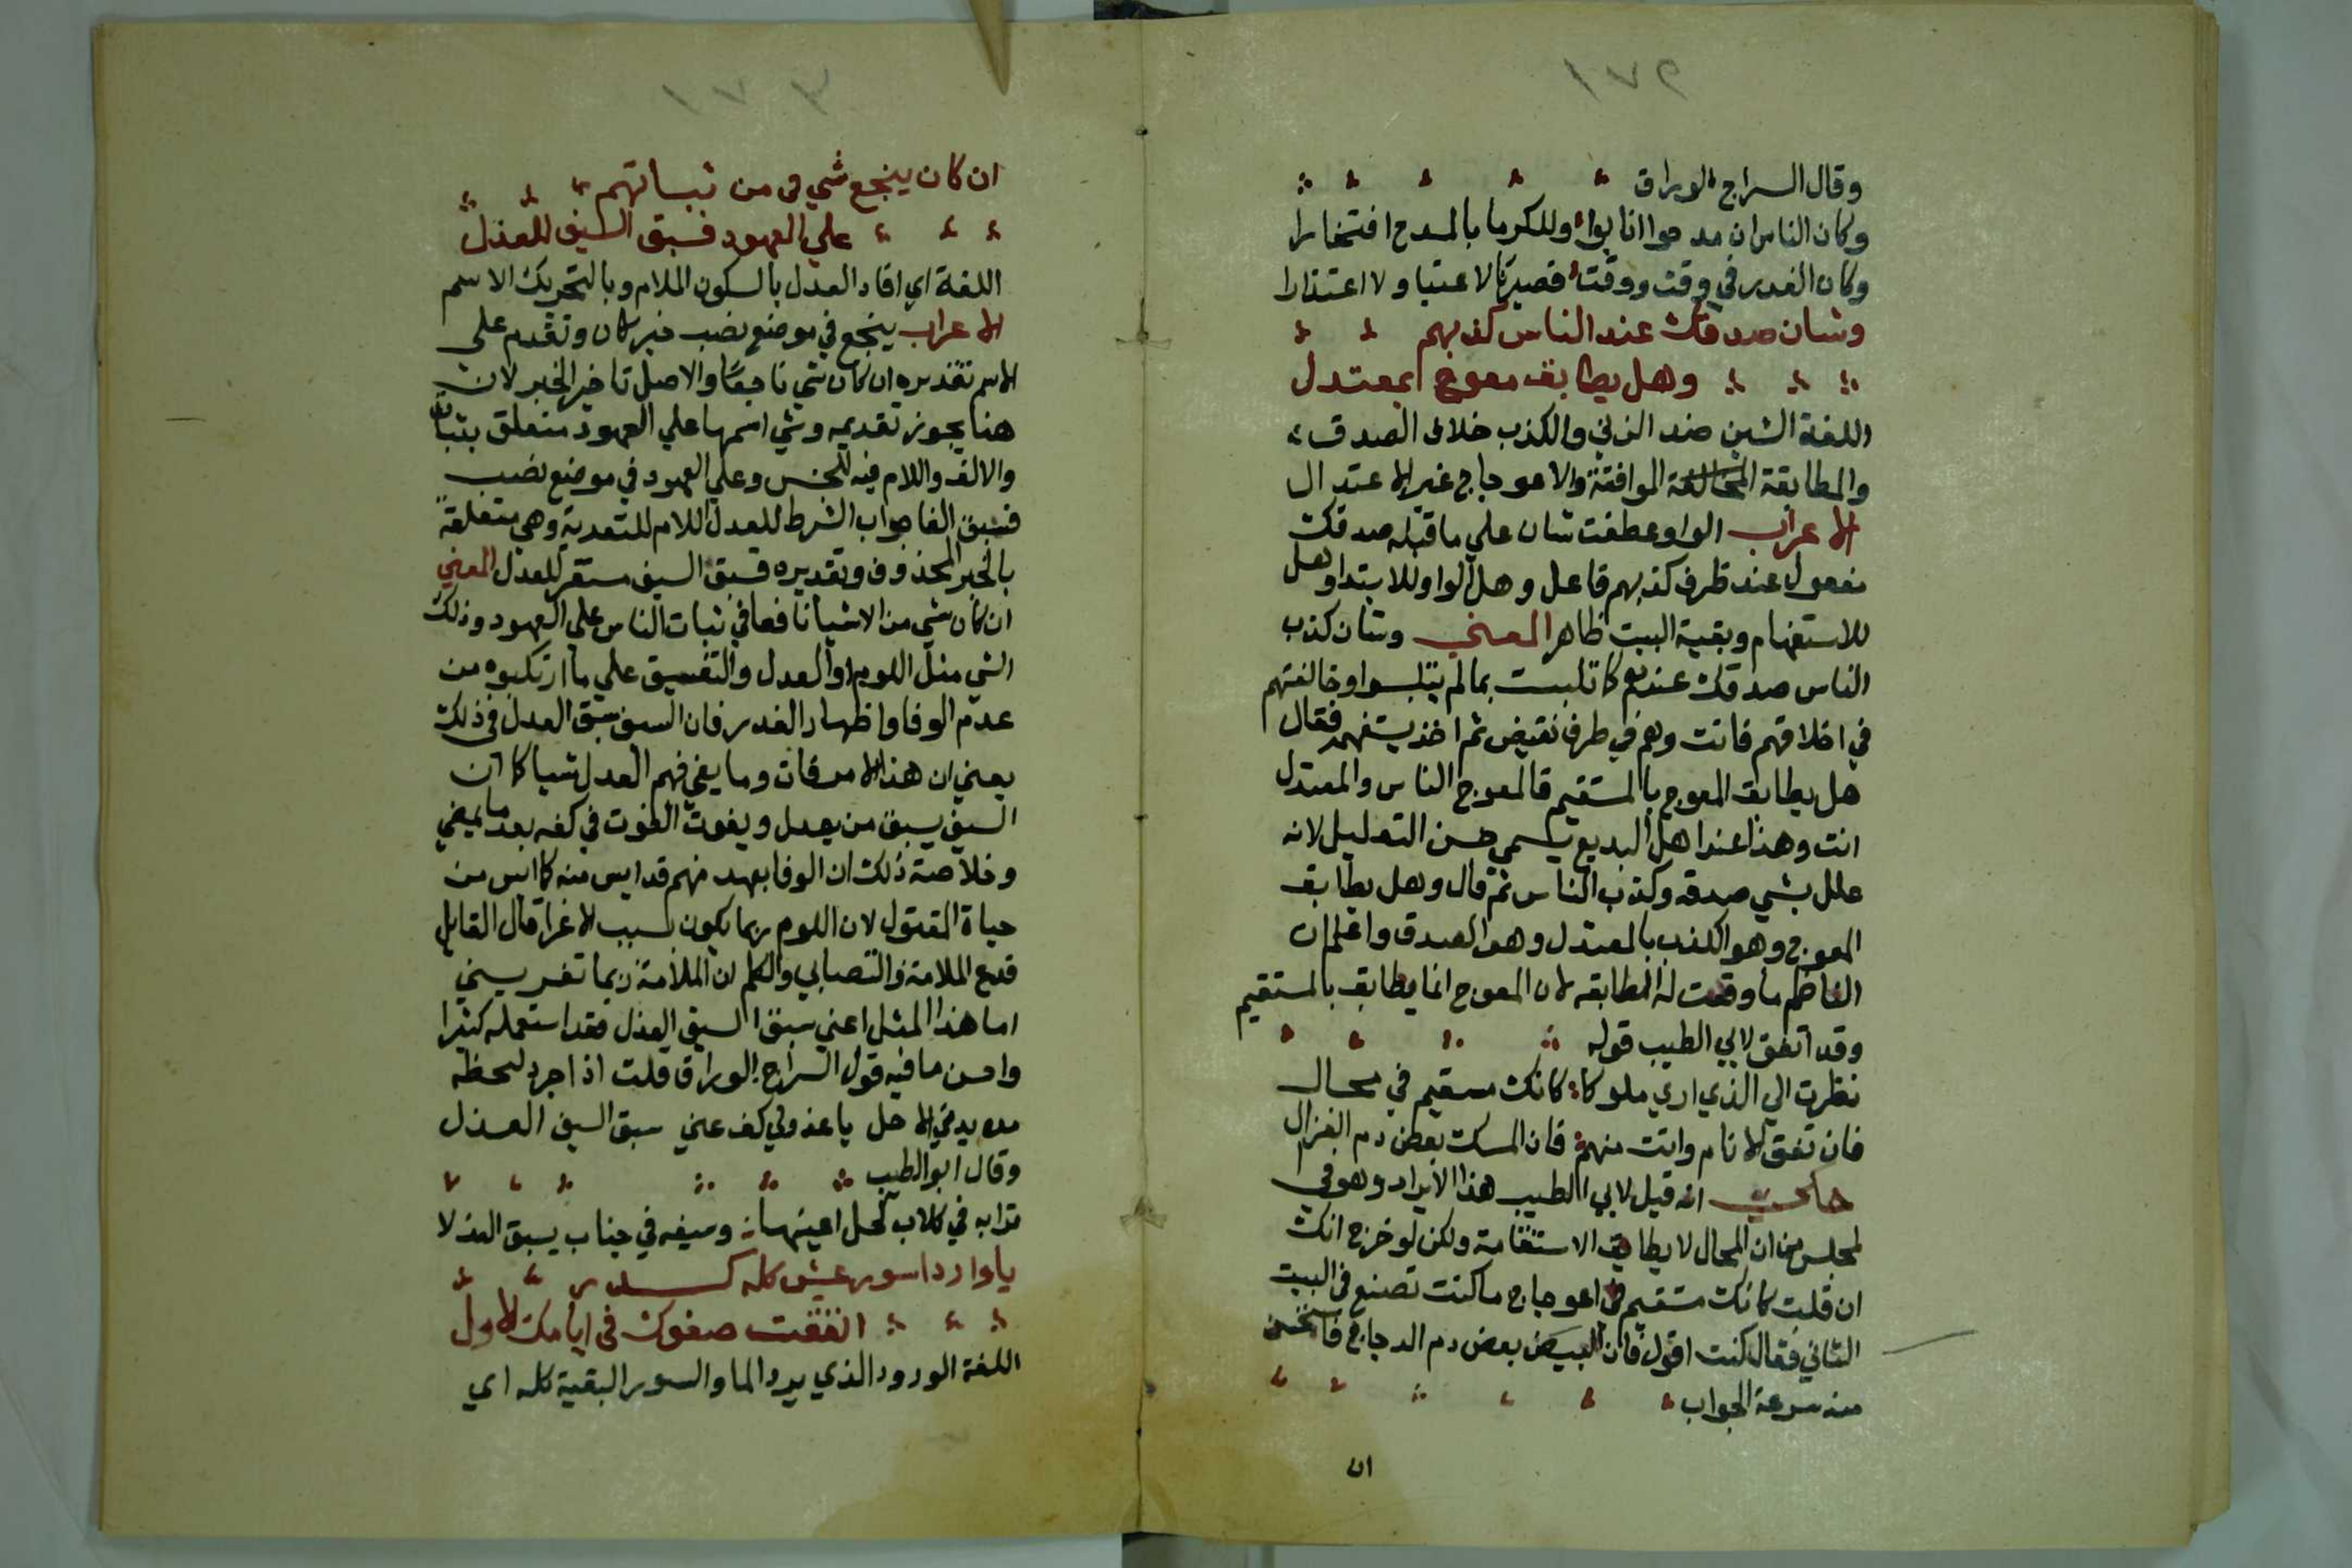 ١٧٩
وقال السراج الوراق
وكان الناس ان مدحوا اثابوا وللكرما بالمدح افتخارا
وكان الغدر في وقت ووقت فصيرنا لا عتبا ولا اعتذارا
وشان صدقك عند الناس كذبهم
وهل يطابق معوج بمعتدل
اللغة الشين ضد الزين والكذب خلاف الصدق
والمطابقة الموافقة والاعوجاج غير الاعتدال
الاعراب الواو عطفت شان علي ما قبله صدقك
مفعول عند ظرف كذبهم فاعل وهل الواو للابتدا وهل
للاستفهام وبقية البيت ظاهر المعني وشان كذب
الناس صدقك عندهم كانك تلبست بما لم يتلبسوا وخالفتهم
في اخلاقهم فانت وهم في طرف نقيض ثم اخذ يستفهم فقال
هل يطابق المعوج بالمستقيم فالمعوج الناس والمعتدل
انت وهذا عند اهل البديع يسمي حسن التعليل لانه
علل بشي صدقه وكذب الناس ثم قال وهل يطابق
المعوج وهو الكذب بالمعتدل وهو الصدق واعلم ان
الناظم ما وقعت له المطابقه لان المعوج انما يطابق بالمستقيم
وقد اتفق لابي الطيب قوله
نظرت الي الذي اري ملوكا كانك مستقيم في محال
فان تفق الانام وانت منهم فان المسك بعض دم الغزال
حكي انه قيل لابي الطيب هذا الايراد وهو في
المجلس من ان المحال لا يطابق الاستقامة ولكن لو خرج انك
ان قلت كانك مستقيم في اعوجاج ما كنت تصنع في البيت
الثاني فقال كنت اقول فان البيض بعض دم الدجاج فاستحسن
منه سرعة الجواب
ان
ان كان ينجع شي في من ثباتهم
علي العهود فسبق السيف للعذل
اللغة اي افاد العدل بالسكون الملام وبالتحريك الاسم
الاعراب ينجع في موضع نصب خبر كان وتقدم على
الاسم تقديره ان كان شي ناجعا والاصل تاخير الخبر لان
هنا يجوز تقديمه وشي اسمها علي العهود متعلق بثبات
والالف واللام فيه للجنس وعلي العهود في موضع نصب
فسبق الفا جواب الشرط للعدل اللام للتعدية وهي متعلقة
بالخبر المحذوف وتقديره فسبق السيف مستقر للعدل المعني
ان كان شي من الاشيا نافعا في ثبات الناس على العهود وذلك
الشي مثل اللوم والعدل والتفسيق علي ما ارتكبوه من
عدم الوفا واظهار الغدر فان السيف سبق العدل في ذلك
يعني ان هذا الامر فات وما يغي فهم العدل شيا كما ان
السيف يسبق من يعدل ويفوت الفوت في كفه بعد ما يمضي
وخلاصة ذلك ان الوفا بعهد منهم قد ايس منه كما ايس من
حياة المقتول لان اللوم ربما يكون لسبب الاغرا قال القايل
فدع الملامة في التصابي واعلم ان الملامة ربما تغريني
اما هذا المثل اعني سبق السيف العذل فقد استعمله كثيرا
واحسن ما فيه قول السراج الوراق قلت اذا جرد لحظه
حده يدني الاجل يا عذولي كف عني سبق السيف العذل
وقال ابو الطيب
ترابه في كلاب كحل اعينها وسيفه في جناب يسبق العذلا
يا واردا سور عيش كله كدر
انفقت صفوك في ايامك الاول
اللغة الورود الذي يرد الما والسور البقية كله اي